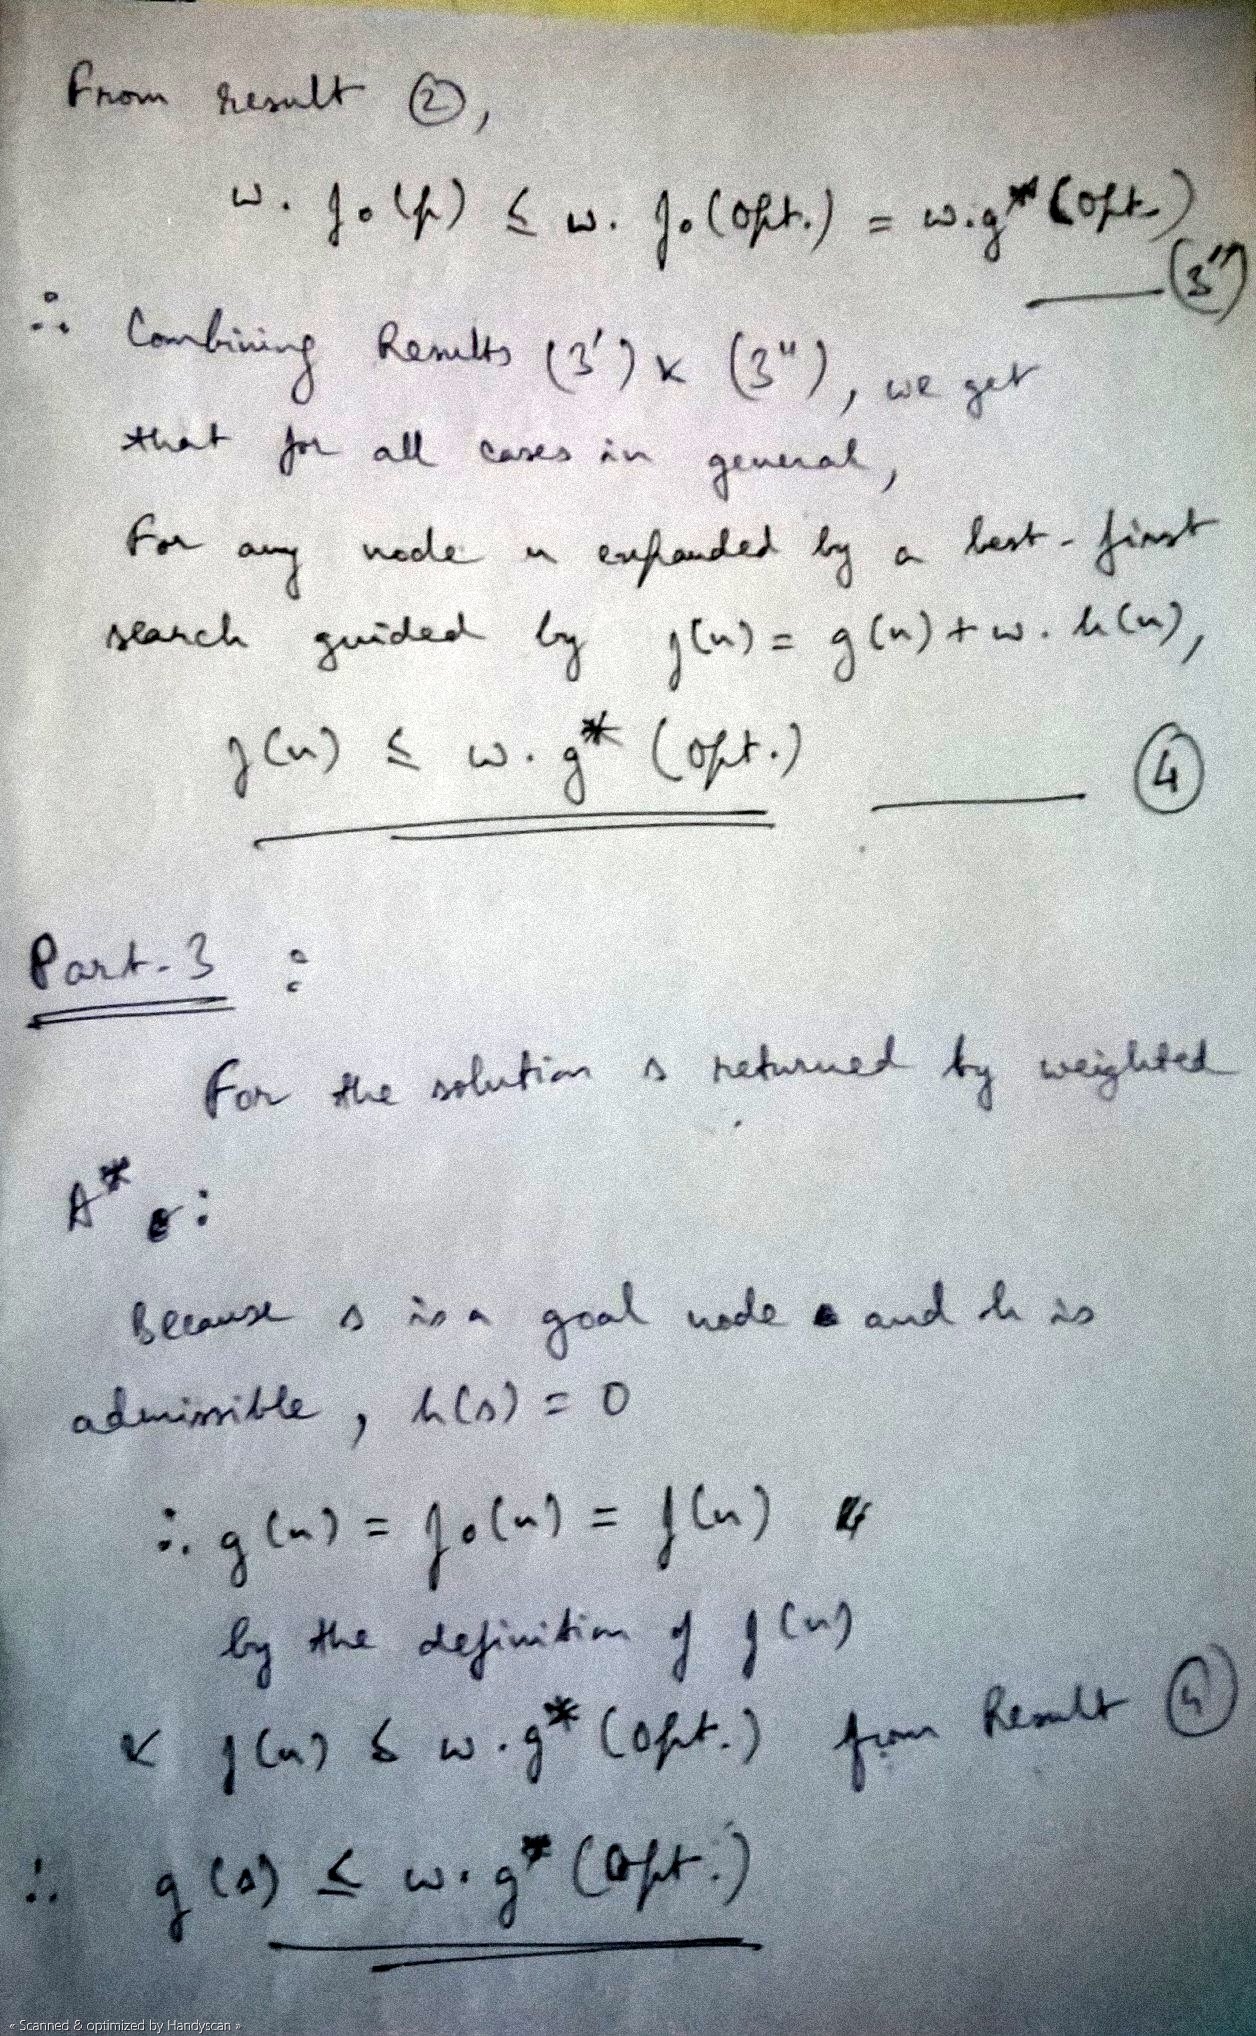 From result ②,
w. f₀(p) ≤ w. f₀(opt.) = w.g*(opt.)
——— (3'')
∴ Combining Results (3') & (3"), we get
that for all cases in general,
For any node n expanded by a best-first
search guided by f(n) = g(n) + w. h(n),
f(n) ≤ w. g* (opt.) ——— ④
Part-3 :
For the solution s returned by weighted
A* :
Because s is a goal node and h is
admissible, h(s) = 0
∴ g(n) = f₀(n) = f(n)
by the definition of f(n)
& f(n) ≤ w.g* (opt.) from Result ④
∴ g(s) ≤ w.g* (opt.)
« Scanned & optimized by Handyscan »